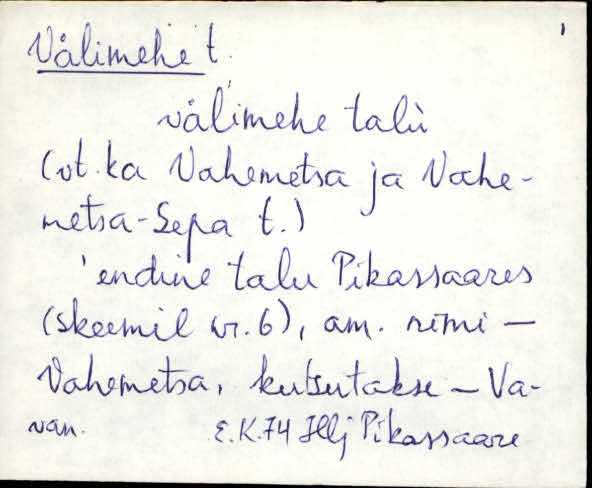 Välimehe t.
väl'imehe talù
(vt. ka Vahemetsa ja Vahe-
metsa-Sepa t.)
'endine talu Pikassaares
(skeemil nr. 6), am. nimi –
Vahemetsa, kutsutakse – Va-
van.
E.K.74 Hlj Pikassaare